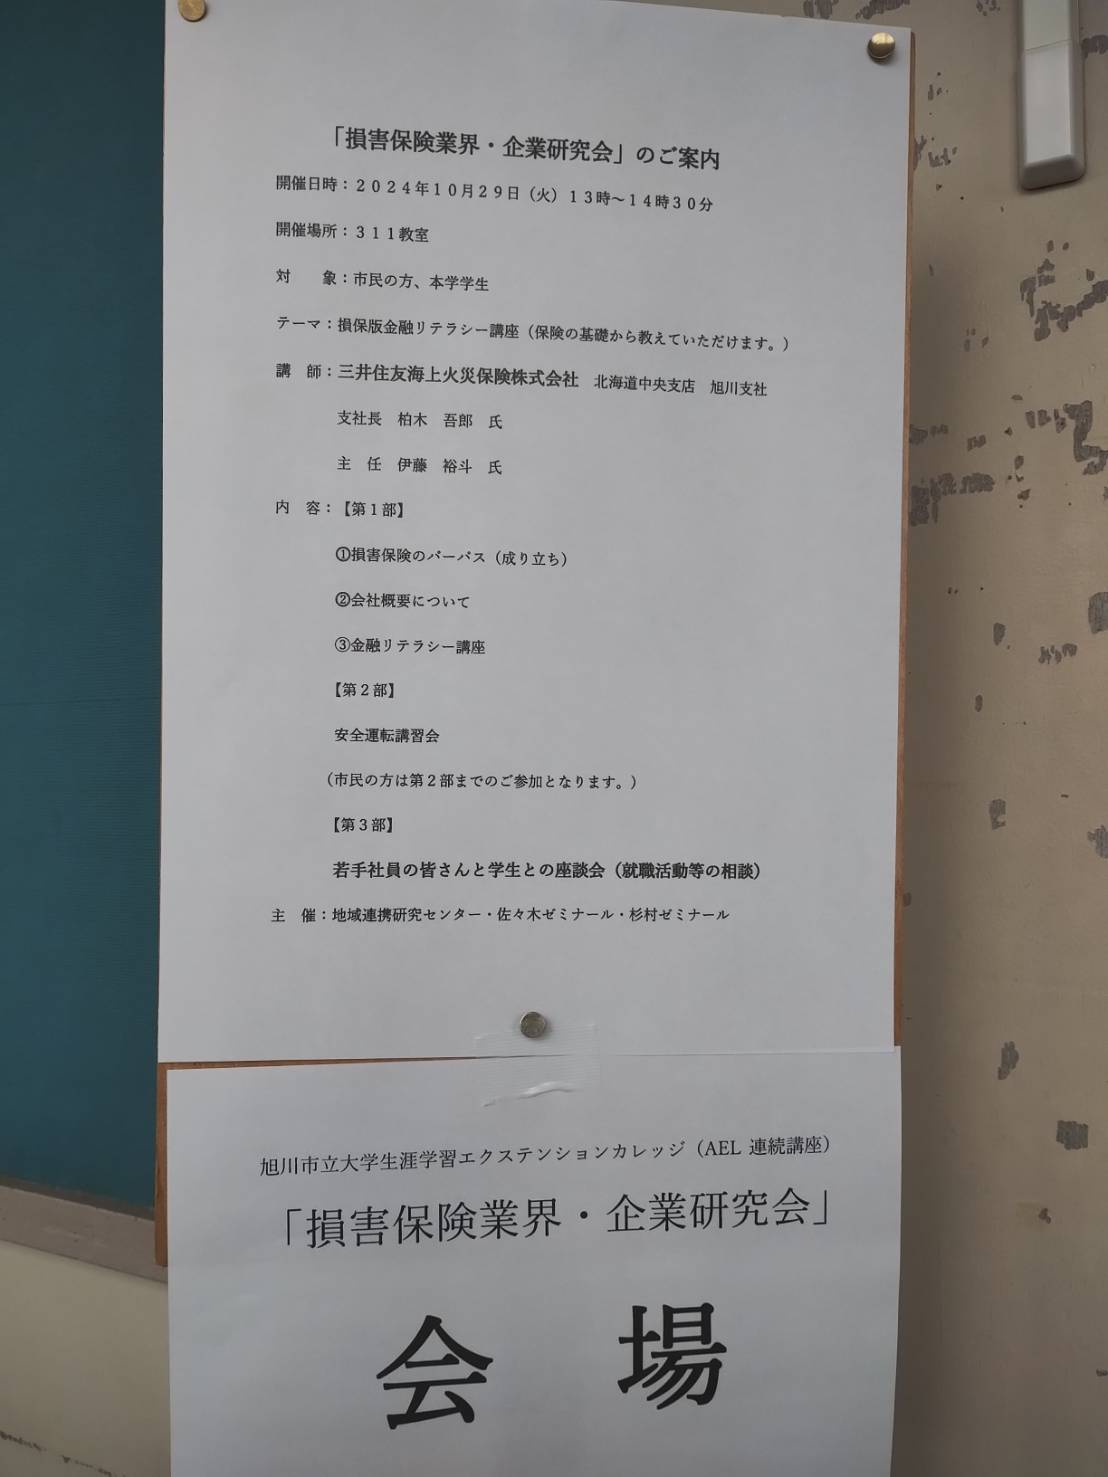 「損害保険業界・企業研究会」のご案内
開催日時：２０２４年１０月２９日（火）１３時～１４時３０分
開催場所：３１１教室
対　　象：市民の方、本学学生
テーマ：損保版金融リテラシー講座（保険の基礎から教えていただけます。）
講　師：三井住友海上火災保険株式会社　北海道中央支店　旭川支社
支社長　柏木　吾郎　氏
主　任　伊藤　裕斗　氏
内　容：【第１部】
①損害保険のパーパス（成り立ち）
②会社概要について
③金融リテラシー講座
【第２部】
安全運転講習会
（市民の方は第２部までのご参加となります。）
【第３部】
若手社員の皆さんと学生との座談会（就職活動等の相談）
主　催：地域連携研究センター・佐々木ゼミナール・杉村ゼミナール
旭川市立大学生涯学習エクステンションカレッジ（AEL 連続講座）
「損害保険業界・企業研究会」
会　場